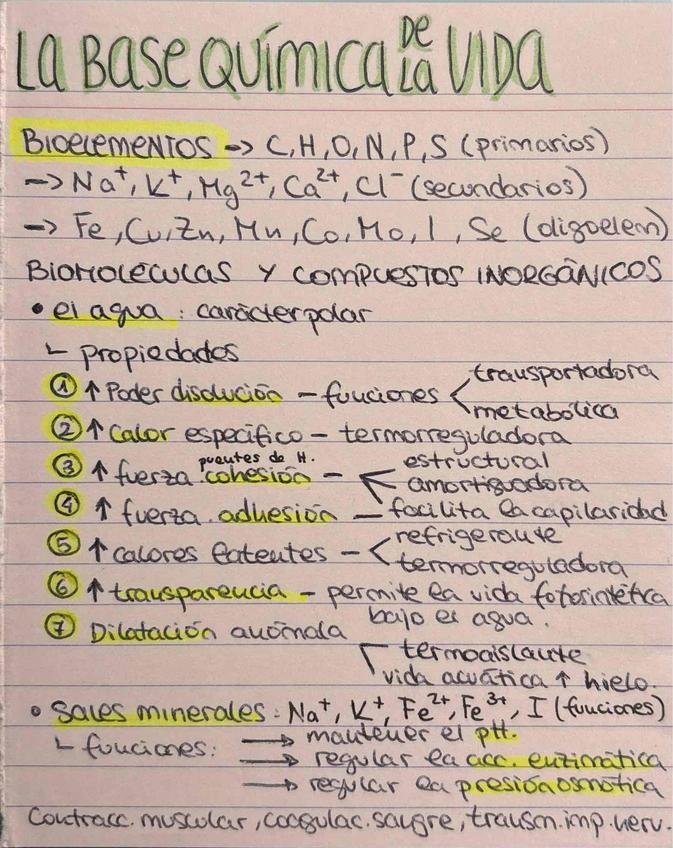 LA BASE QUÍMICA DE LA VIDA
BIOELEMENTOS -> C, H, O, N, P, S (primarios)
-> Na⁺, K⁺, Mg²⁺, Ca²⁺, Cl⁻ (secundarios)
-> Fe, Cu, Zn, Mn, Co, Mo, I, Se (oligoelem)
BIOMOLÉCULAS Y COMPUESTOS INORGÁNICOS
• el agua : carácter polar
∟ propiedades
① ↑ Poder disolución – funciones < transportadora
metabólica
② ↑ calor específico – termorreguladora
③ ↑ fuerza cohesión – estructural
puentes de H.
amortiguadora
④ ↑ fuerza adhesión – facilita la capilaridad
⑤ ↑ calores latentes – < refrigerante
termorreguladora
⑥ ↑ transparencia – permite la vida fotosintética
bajo el agua.
⑦ Dilatación anómala
termoaislante
vida acuática ↑ hielo.
• Sales minerales : Na⁺, K⁺, Fe²⁺, Fe³⁺, I (funciones)
∟ funciones: → mantener el pH.
→ regular la acc. enzimática
→ regular la presión osmótica
Contracc. muscular, coagulac. sangre, transm. imp. nerv.